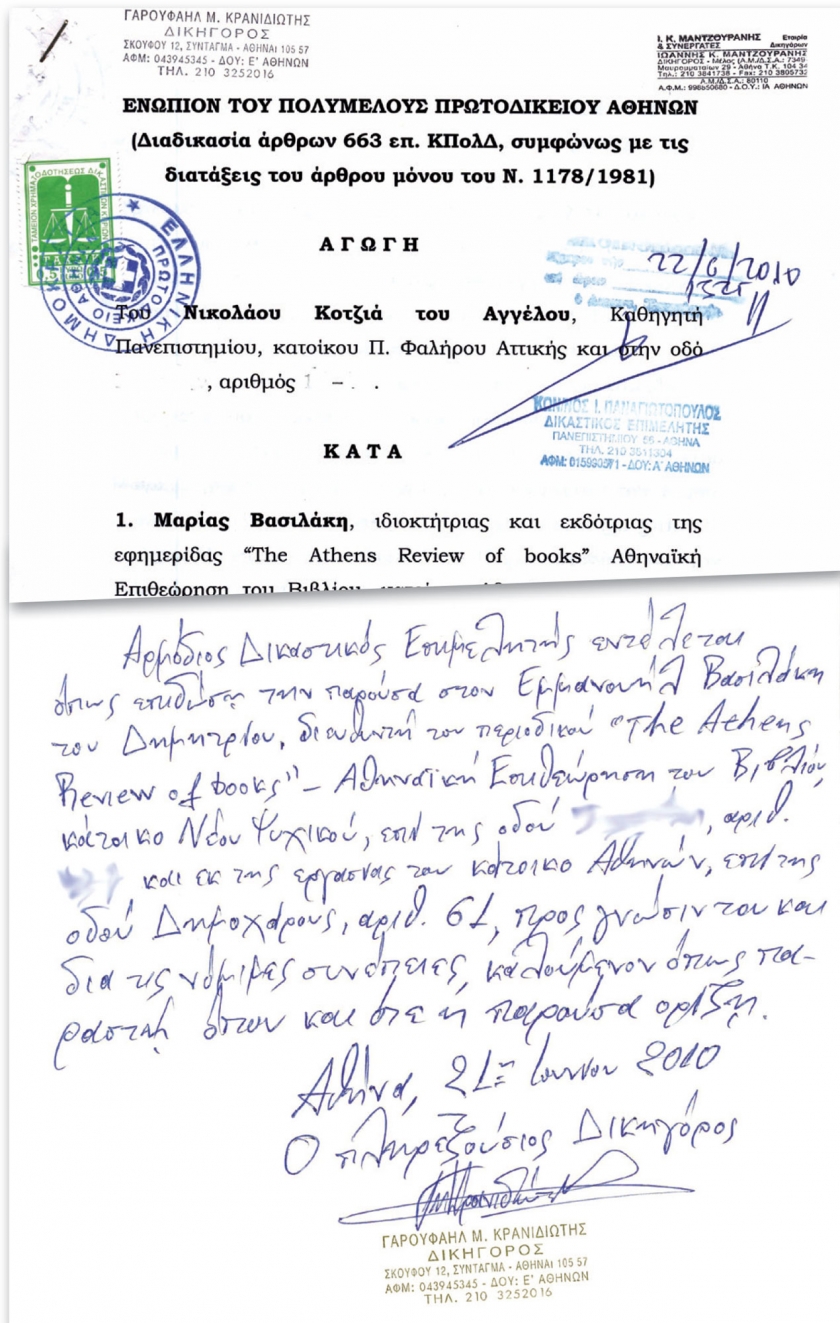 ΓΑΡΟΥΦΑΗΛ Μ. ΚΡΑΝΙΔΙΩΤΗΣ
ΔΙΚΗΓΟΡΟΣ
ΣΚΟΥΦΟΥ 12, ΣΥΝΤΑΓΜΑ - ΑΘΗΝΑΙ 105 57
ΑΦΜ: 043945345 - ΔΟΥ: Ε' ΑΘΗΝΩΝ
ΤΗΛ. 210 3252016
Ι. Κ. ΜΑΝΤΖΟΥΡΑΝΗΣ Εταιρία
& ΣΥΝΕΡΓΑΤΕΣ Δικηγόρων
ΙΩΑΝΝΗΣ Κ. ΜΑΝΤΖΟΥΡΑΝΗΣ
ΔΙΚΗΓΟΡΟΣ - Μέλος (Α.Μ./Δ.Σ.Α.: 7349)
Μαυρομματαίων 29 - Αθήνα Τ.Κ. 104 34
Τηλ.: 210 3841738 - Fax: 210 3805732
Α.Μ./Δ.Σ.Α.: 80110
Α.Φ.Μ.: 998550680 - Δ.Ο.Υ.: ΙΑ ΑΘΗΝΩΝ
ΕΝΩΠΙΟΝ ΤΟΥ ΠΟΛΥΜΕΛΟΥΣ ΠΡΩΤΟΔΙΚΕΙΟΥ ΑΘΗΝΩΝ
(Διαδικασία άρθρων 663 επ. ΚΠολΔ, συμφώνως με τις
διατάξεις του άρθρου μόνου του Ν. 1178/1981)
ΕΛΛΗΝΙΚΗ ΔΗΜΟΚ
ΠΡΩΤΟΔΙΚΕΙΟ ΑΘ
ΑΓΩΓΗ
22/6/2010
Του Νικολάου Κοτζιά του Αγγέλου, Καθηγητή
Πανεπιστημίου, κατοίκου Π. Φαλήρου Αττικής και στην οδό
, αριθμός –
ΚΟΝ/ΝΟΣ Ι. ΠΑΝΑΓΙΩΤΟΠΟΥΛΟΣ
ΔΙΚΑΣΤΙΚΟΣ ΕΠΙΜΕΛΗΤΗΣ
ΠΑΝΕΠΙΣΤΗΜΙΟΥ 56 - ΑΘΗΝΑ
ΤΗΛ. 210 3811304
ΔΟΥ: Α' ΑΘΗΝΩΝ
ΚΑΤΑ
1. Μαρίας Βασιλάκη, ιδιοκτήτριας και εκδότριας της
εφημερίδας “The Athens Review of books” Αθηναϊκή
Επιθεώρηση του Βιβλίου,
Αρμόδιος Δικαστικός Επιμελητής εντέλεται
όπως επιδώση την παρούσα στον Εμμανουήλ Βασιλάκη
του Δημητρίου, διευθυντή του περιοδικού "The Athens
Review of books" – Αθηναϊκή Επιθεώρηση του Βιβλίου,
κάτοικο Νέου Ψυχικού, επί της οδού , αριθ.
και εκ της εργασίας του κάτοικο Αθηνών, επί της
οδού Δημοχάρους, αριθ. 61, προς γνώσιν του και
δια τις νόμιμες συνέπειες, καλούμενον όπως πα-
ραστή όπου και ότε η παρούσα ορίζη.
Αθήνα, 21η Ιουνίου 2010
Ο πληρεξούσιος Δικηγόρος
ΓΑΡΟΥΦΑΗΛ Μ. ΚΡΑΝΙΔΙΩΤΗΣ
ΔΙΚΗΓΟΡΟΣ
ΣΚΟΥΦΟΥ 12, ΣΥΝΤΑΓΜΑ - ΑΘΗΝΑΙ 105 57
ΑΦΜ: 043945345 - ΔΟΥ: Ε' ΑΘΗΝΩΝ
ΤΗΛ. 210 3252016